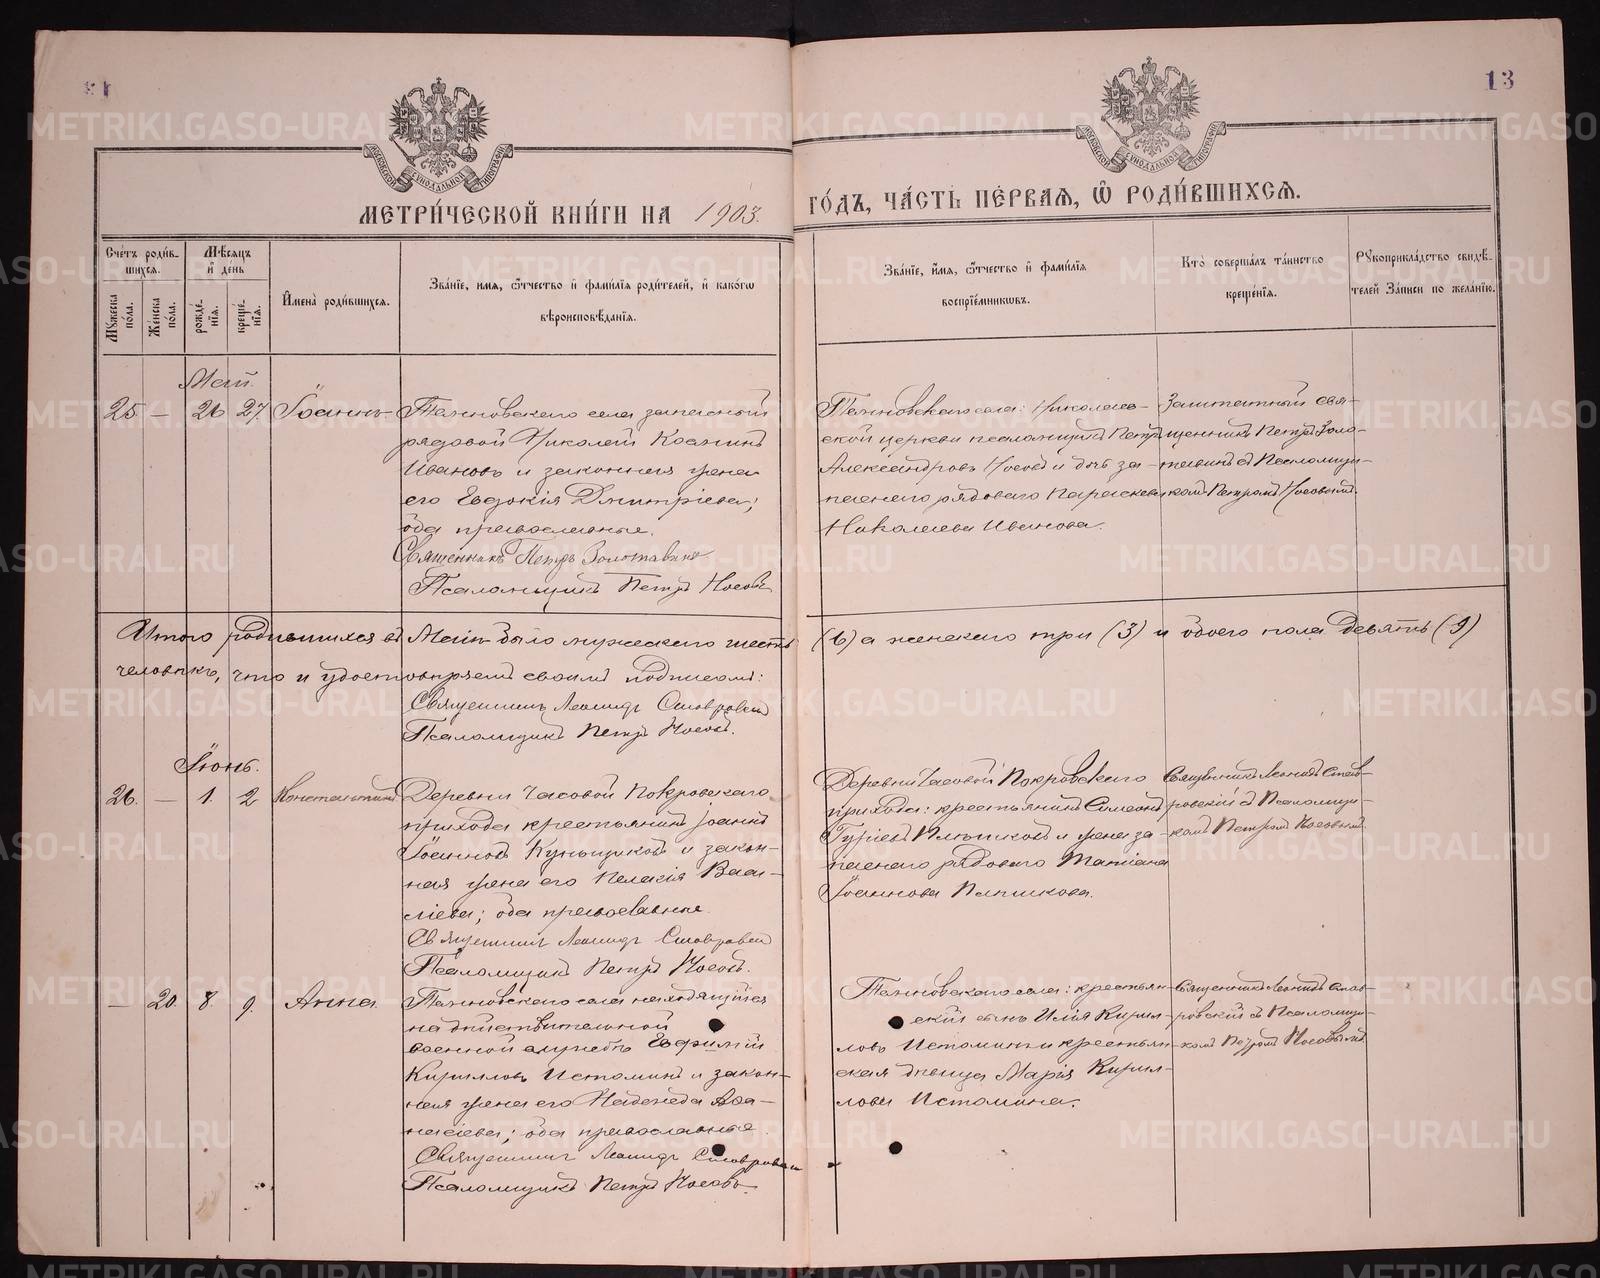 13
МЕТРИ́ЧЕСКОЙ КНИ́ГИ НА 1903.
ГО́ДЪ, ЧА́СТЬ ПЕ́РВАЯ, Ѿ РОДИ́ВШИХСЯ.
Сче́тъ роди́вшихся.
Мужеска по́ла.
Же́нска по́ла.
Мѣ́сяцъ и҆ день
рожде́нїя.
креще́нїя.
И҆мена̀ роди́вшихся.
Зва́нїе, имя, ѻ҆́тчество и҆ фами́лїя роди́телей, и҆ како́гѡ
вѣроисповѣ́данїя.
Зва́нїе, и҆́мя, ѻ҆́тчество и҆ фами́лїя
воспрїе́мниковъ.
Кто̀ соверша́лъ та́инство
креще́нїя.
Рꙋкоприкла́дство свидѣ́телей За́писи по жела́нїю.
Май.
25. — 26 27 Іоаннъ
Таяновскаго села запасный
рядовой Николай
Ивановъ и законная жена
его Евдокія Димитріева;
оба православные.
Священникъ Петръ Золотавинъ
Псаломщикъ Петръ Носовъ
села: Николаев-
ской церкви псаломщикъ Петръ
Александровъ Носовъ и дочь за-
паснаго рядоваго Параскева
Николаева Иванова.
Заштатный свя-
щенникъ Петръ Золо-
тавинъ съ Псаломщи-
комъ Петромъ Носовымъ.
Итого родившихся въ Маѣ было мужескаго шесть (6) а женскаго три (3) и обоего пола девять (9)
человѣкъ, что и удостовѣряемъ своимъ подписомъ:
Священникъ Леонидъ Ставровскій
Псаломщикъ Петръ Носовъ.
Іюнь.
26. — 1. 2 Константинъ
Деревни Часовой Покровскаго
прихода крестьянинъ Іоаннъ
Іоанновъ и закон-
ная жена его Пелагія Васи-
ліева; оба православные.
Священникъ Леонидъ Ставровскій
Псаломщикъ Петръ Носовъ.
Деревни Часовой Покровскаго
прихода: крестьянинъ Симеонъ
Гуріевъ и жена за-
паснаго рядоваго Татіана
Іоаннова
Священникъ Леонидъ Став-
ровскій съ Псаломщи-
комъ Петромъ Носовымъ.
— 20. 8. 9. Анна.
села находящійся
на дѣйствительной
военной службѣ Евфимій
Кирилловъ Истоминъ и закон-
ная жена его Надежда Аѳа-
насіева; оба православные.
Священникъ Леонидъ Ставровскій
Псаломщикъ Петръ Носовъ.
села: крестьян-
скій сынъ Илія Кирил-
ловъ Истоминъ и крестьян-
ская дѣвица Марія Кирил-
лова Истомина.
Священникъ Леонидъ Став-
ровскій съ Псаломщи-
комъ Петромъ Носовымъ.
METRIKI.GASO-URAL.RU